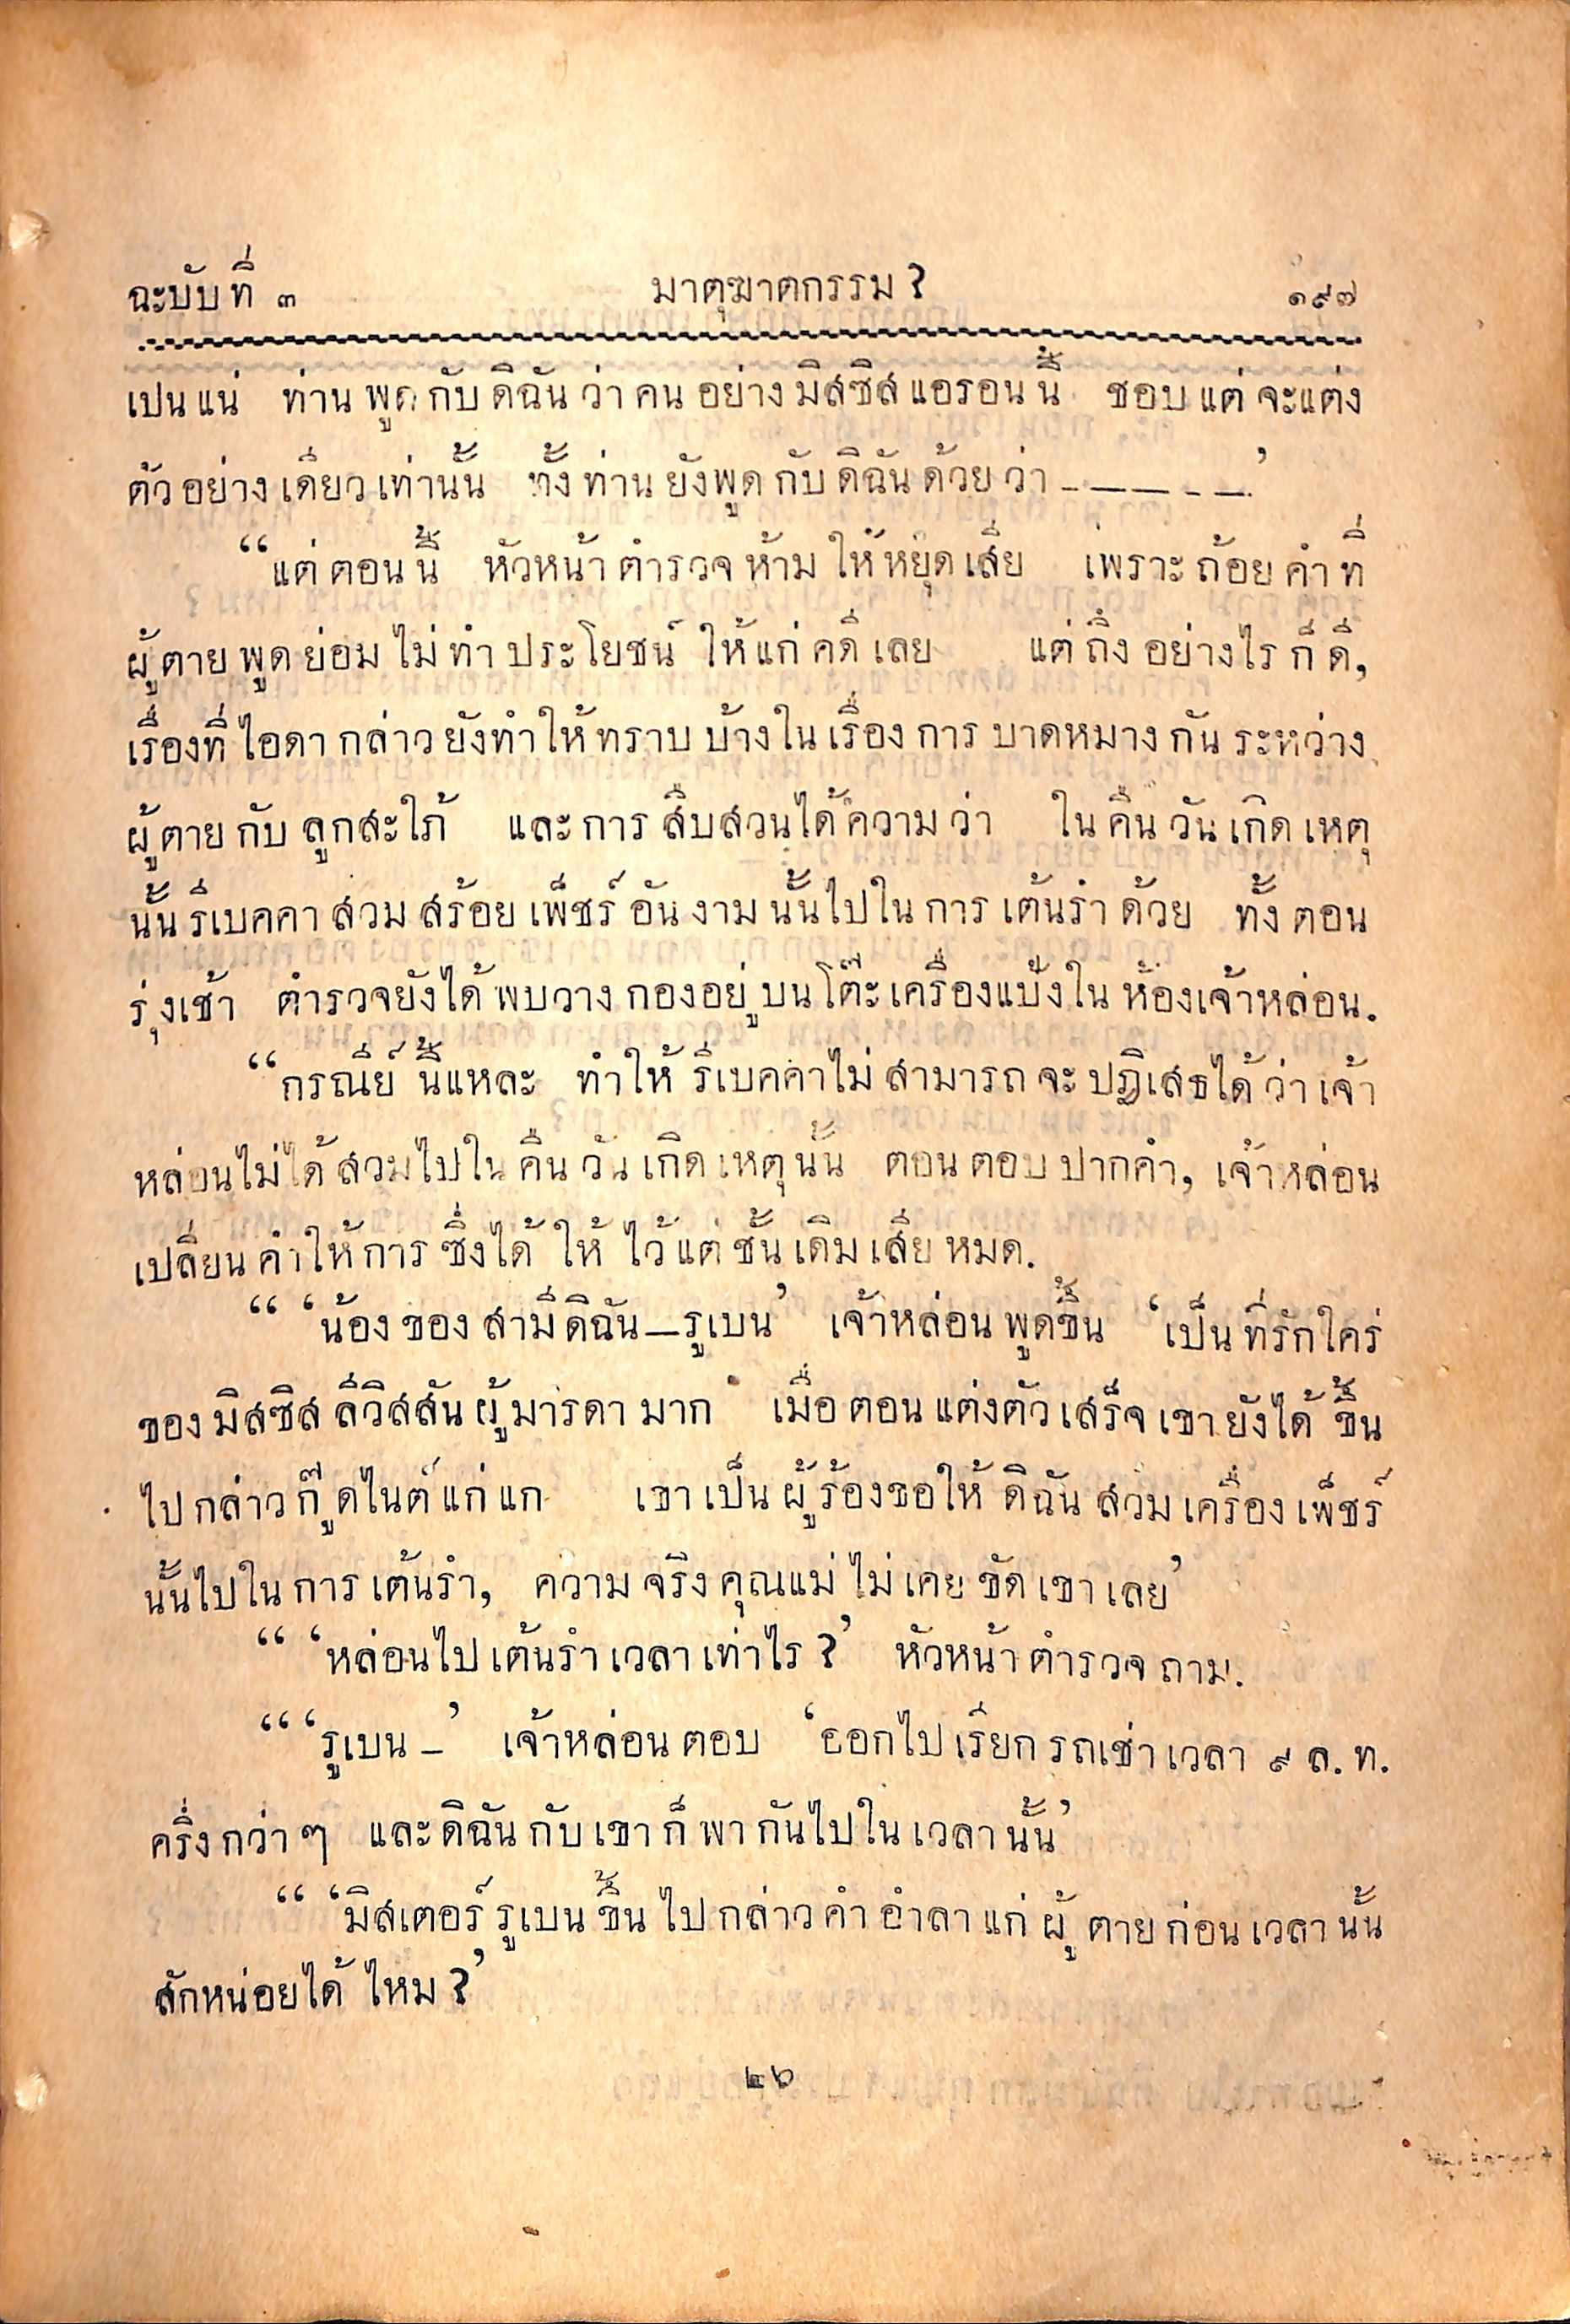 ฉะบับที่ ๓ มาตุฆาตกรรม? ๑๙๗
เปนแน่ ท่านพูดกับดิฉันว่าคนอย่างมิสซิสแอรอนนี้ ชอบแต่จะแต่ง
ตัวอย่างเดียวเท่านั้น ทั้งท่านยังพูดกับดิฉันด้วยว่า – — — - —’
“แต่ตอนนี้ หัวหน้าตำรวจห้ามให้หยุดเสีย เพราะถ้อยคำที่
ผู้ตายพูดย่อมไม่ทำประโยชน์ให้แก่คดีเลย แต่ถึงอย่างไรก็ดี,
เรื่องที่ไอดากล่าวยังทำให้ทราบบ้างในเรื่องการบาดหมางกันระหว่าง
ผู้ตายกับลูกสะใภ้ และการสืบสวนได้ความว่า ในคืนวันเกิดเหตุ
นั้นรีเบคคาสวมสร้อยเพ็ชร์อันงามนั้นไปในการเต้นรำด้วย ทั้งตอน
รุ่งเช้า ตำรวจยังได้พบวางกองอยู่บนโต๊ะเครื่องแป้งในห้องเจ้าหล่อน.
“กรณีย์นี้แหละ ทำให้รีเบคคาไม่สามารถจะปฏิเสธได้ว่าเจ้า
หล่อนไม่ได้สวมไปในคืนวันเกิดเหตุนั้น ตอนตอบปากคำ, เจ้าหล่อน
เปลี่ยนคำให้การซึ่งได้ให้ไว้แต่ชั้นเดิมเสียหมด.
“ ‘น้องของสามีดิฉัน—รูเบน’ เจ้าหล่อนพูดขึ้น ‘เป็นที่รักใคร่
ของมิสซิสลีวิสสันผู้มารดามาก เมื่อตอนแต่งตัวเสร็จเขายังได้ขึ้น
ไปกล่าวกู๊ดไนต์แก่แก เขาเป็นผู้ร้องขอให้ดิฉันสวมเครื่องเพ็ชร์
นั้นไปในการเต้นรำ, ความจริงคุณแม่ไม่เคยขัดเขาเลย’
“ ‘หล่อนไปเต้นรำเวลาเท่าไร?’ หัวหน้าตำรวจถาม.
“ ‘รูเบน –’ เจ้าหล่อนตอบ ‘ออกไปเรียกรถเช่าเวลา ๙ ล.ท.
ครึ่งกว่าๆ และดิฉันกับเขาก็พากันไปในเวลานั้น’
“ ‘มิสเตอร์รูเบนขึ้นไปกล่าวคำอำลาแก่ผู้ตายก่อนเวลานั้น
สักหน่อยได้ไหม?’
๒๖